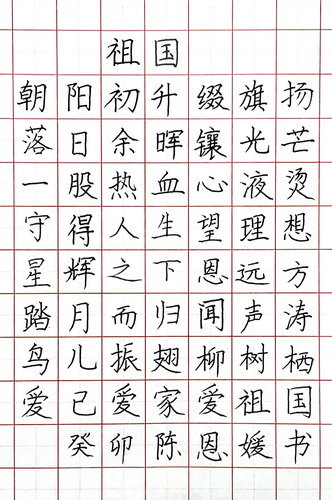 祖国
朝阳初升缀旗扬
落日余晖镶光芒
一股热血心液烫
守得人生望理想
星辉之下恩远方
踏月而归闻声涛
鸟儿振翅柳树栖
爱已爱家爱祖国
癸卯陈恩媛书